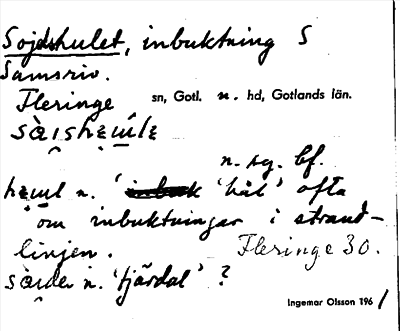 Sojdshulet, inbuktning S
Samsriv.
Fleringe sn, Gotl. n. hd, Gotlands län.
n. sg. bf.
n. ' 'hål' ofta
om inbuktningar i strand-
linjen. Fleringe 30.
n. 'tjärdal' ?
Ingemar Olsson 1961